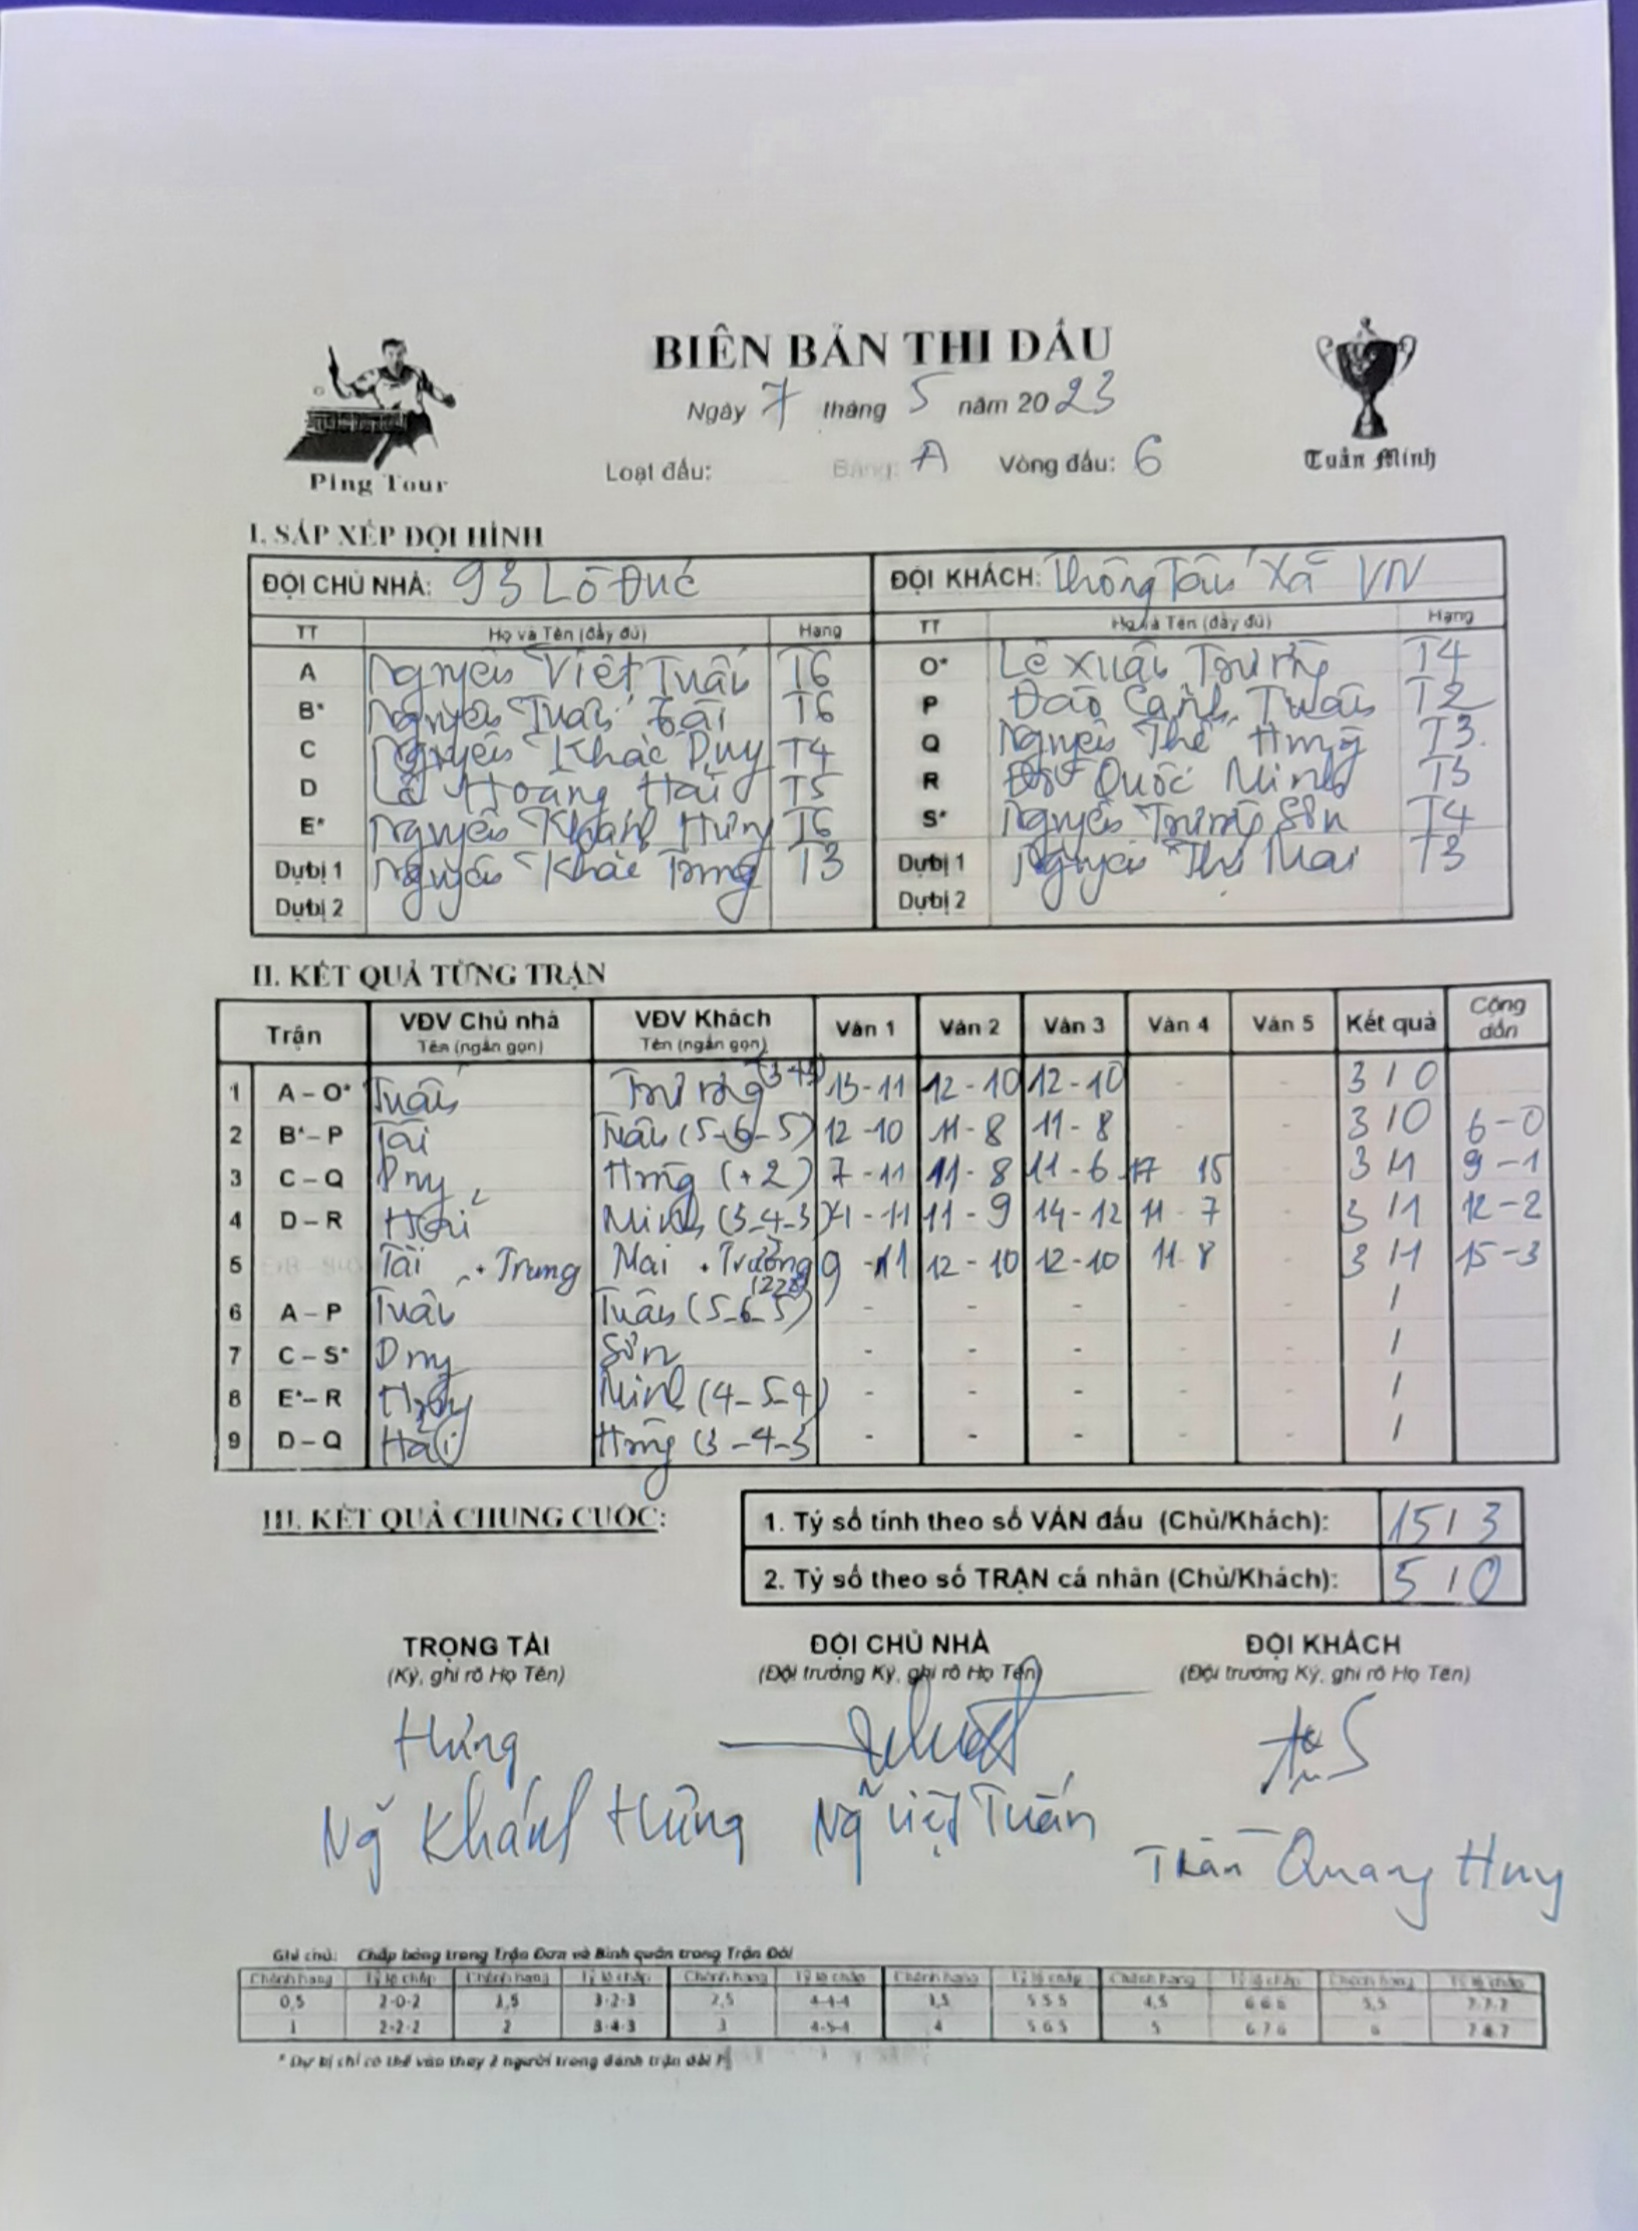 BIÊN BẢN THI ĐẤU
Ngày 7 tháng 5 năm 2023
Ping Tour
Loạt đấu: Bảng: A Vòng đấu: 6
Tuấn Minh
I. SẮP XẾP ĐỘI HÌNH
ĐỘI CHỦ NHÀ: 93 Lò Đúc ĐỘI KHÁCH: Thông Tấn Xã VN
TT Họ và Tên (đầy đủ) Hạng TT Họ và Tên (đầy đủ) Hạng
A Nguyễn Viết Tuấn T6 O* Lê Xuân Trường T4
B* Nguyễn Tuấn Tài T6 P Đào Cảnh Tuấn T2
C Nguyễn Khắc Duy T4 Q Nguyễn Thế Hưng T3
D Lê Hoàng Hải T5 R Quốc Minh T3
E* Nguyễn Khánh Hưng T6 S* Nguyễn Trường Sơn T4
Dự bị 1 Nguyễn Khắc Trung T3 Dự bị 1 Nguyễn Thị Mai T3
Dự bị 2 Dự bị 2
II. KẾT QUẢ TỪNG TRẬN
Trận VĐV Chủ nhà Tên (ngắn gọn) VĐV Khách Tên (ngắn gọn) Ván 1 Ván 2 Ván 3 Ván 4 Ván 5 Kết quả Cộng dồn
1 A – O* Tuấn Trường (3-4-3) 13-11 12-10 12-10 - - 3 / 0
2 B* – P Tài Tuấn (5-6-5) 12-10 11-8 11-8 - - 3 / 0 6-0
3 C – Q Duy Hưng (+2) 7-11 11-8 11-6 17 15 - 3 / 1 9-1
4 D – R Hải Minh (3-4-3) 11-9 14-12 11-7 - 3 / 1 12-2
5 Tài + Trung Mai + Trường (222) 9-11 12-10 12-10 11-8 3 / 1 15-3
6 A – P Tuấn Tuấn (5-6-5) - - - - - /
7 C – S* Duy Sơn - - - - - /
8 E* – R Hưng Minh (4-5-4) - - - - - /
9 D – Q Hải Hưng (3-4-3 - - - - - /
III. KẾT QUẢ CHUNG CUỘC:
1. Tỷ số tính theo số VÁN đấu (Chủ/Khách): 15 / 3
2. Tỷ số theo số TRẬN cá nhân (Chủ/Khách): 5 / 0
TRỌNG TÀI ĐỘI CHỦ NHÀ ĐỘI KHÁCH
(Ký, ghi rõ Họ Tên) (Đội trưởng Ký, ghi rõ Họ Tên) (Đội trưởng Ký, ghi rõ Họ Tên)
Hưng
Ng̃ Khánh Hưng Ng̃ Việt Tuấn Trần Quang Huy
Ghi chú: Chấp bóng trong Trận Đơn và Bình quân trong Trận Đôi
Chênh hạng Tỷ lệ chấp Chênh hạng Tỷ lệ chấp Chênh hạng Tỷ lệ chấp Chênh hạng Tỷ lệ chấp Chênh hạng Tỷ lệ chấp Chênh hạng Tỷ lệ chấp
0,5 2-0-2 1,5 3-2-3 2,5 4-4-4 3,5 5 5 5 4,5 6 6 6 5,5 7-7-7
1 2-2-2 2 3-4-3 3 4-5-4 4 5 6 5 5 6 7 6 6 7 8 7
* Dự bị chỉ có thể vào thay 2 người trong đánh trận đôi